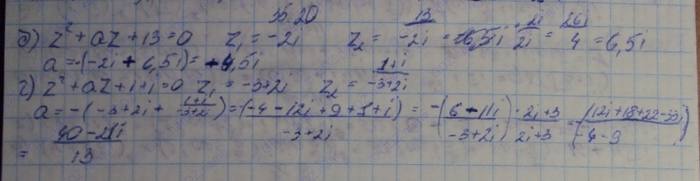 35.20
д) z² + az + 13 = 0   z₁ = -2i   z₂ = 13/-2i = · 2i/2i = 26i/4 = 6,5i
a = -(-2i + 6,5i) = -4,5i
г) z² + az + 1 + i = 0   z₁ = -3+2i   z₂ = 1+i/-3+2i
a = -(-3+2i + 1+i/-3+2i) = (-4-12i+9+1+i)/-3+2i = -(6-11i/-3+2i) · 2i+3/2i+3 = (12i+18+22-33i/-4-9)
= 40-21i/13